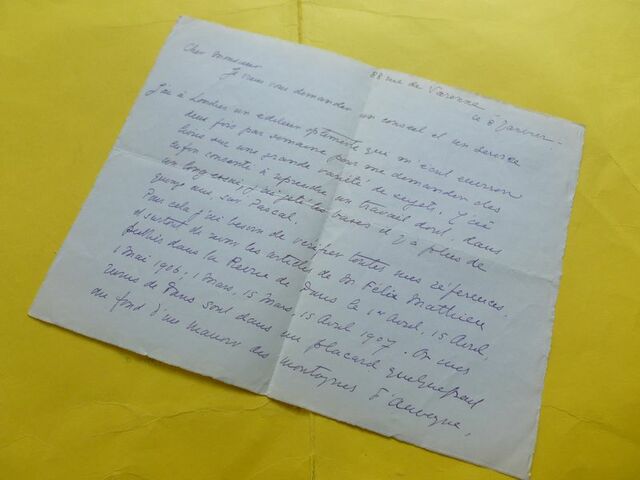 88 rue de Varenne
le 8 Janvier.
Cher Monsieur
Je veux vous demander un conseil et un service
J'ai à Londres un éditeur optimiste qui m'écrit environ
deux fois par semaine pour me demander des
livres sur une grande variété de sujets. J'ai
enfin consenti à reprendre un travail dont, dans
un long essai, j'ai jeté les bases il y a plus de
quinze ans, sur Pascal.
Pour cela j'ai besoin de vérifier toutes mes références.
et surtout de revoir les articles de M Félix Mathieu
publiés dans la Revue de Paris le 1er Avril, 15 Avril,
1 Mai 1906; 1 Mars, 15 Mars, 15 Avril 1907. Or mes
revues de Paris sont dans un placard quelquepart
au fond d'un manoir des montagnes d'Auvergne,